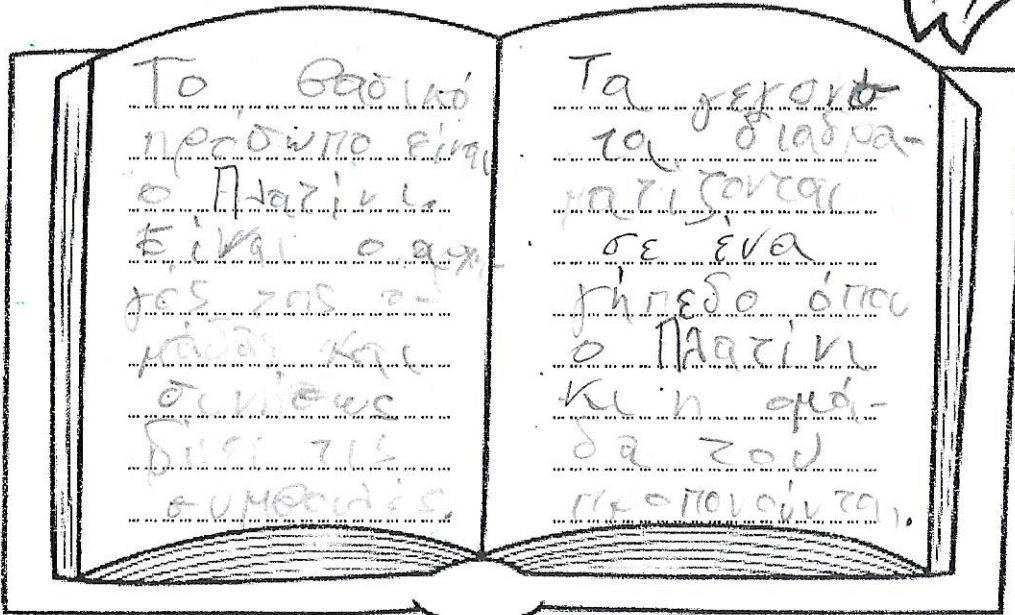 Το βασικό
πρόσωπο είναι
ο Πλατίνι.
Είναι ο αρχη-
γός της ο-
μάδας και
συνήθως
δίνει τις
συμβουλές.
Τα γεγονό
τα διαδρα-
ματίζονται
σε ένα
γήπεδο όπου
ο Πλατίνι
κι η ομά-
δα του
προπονούνται.